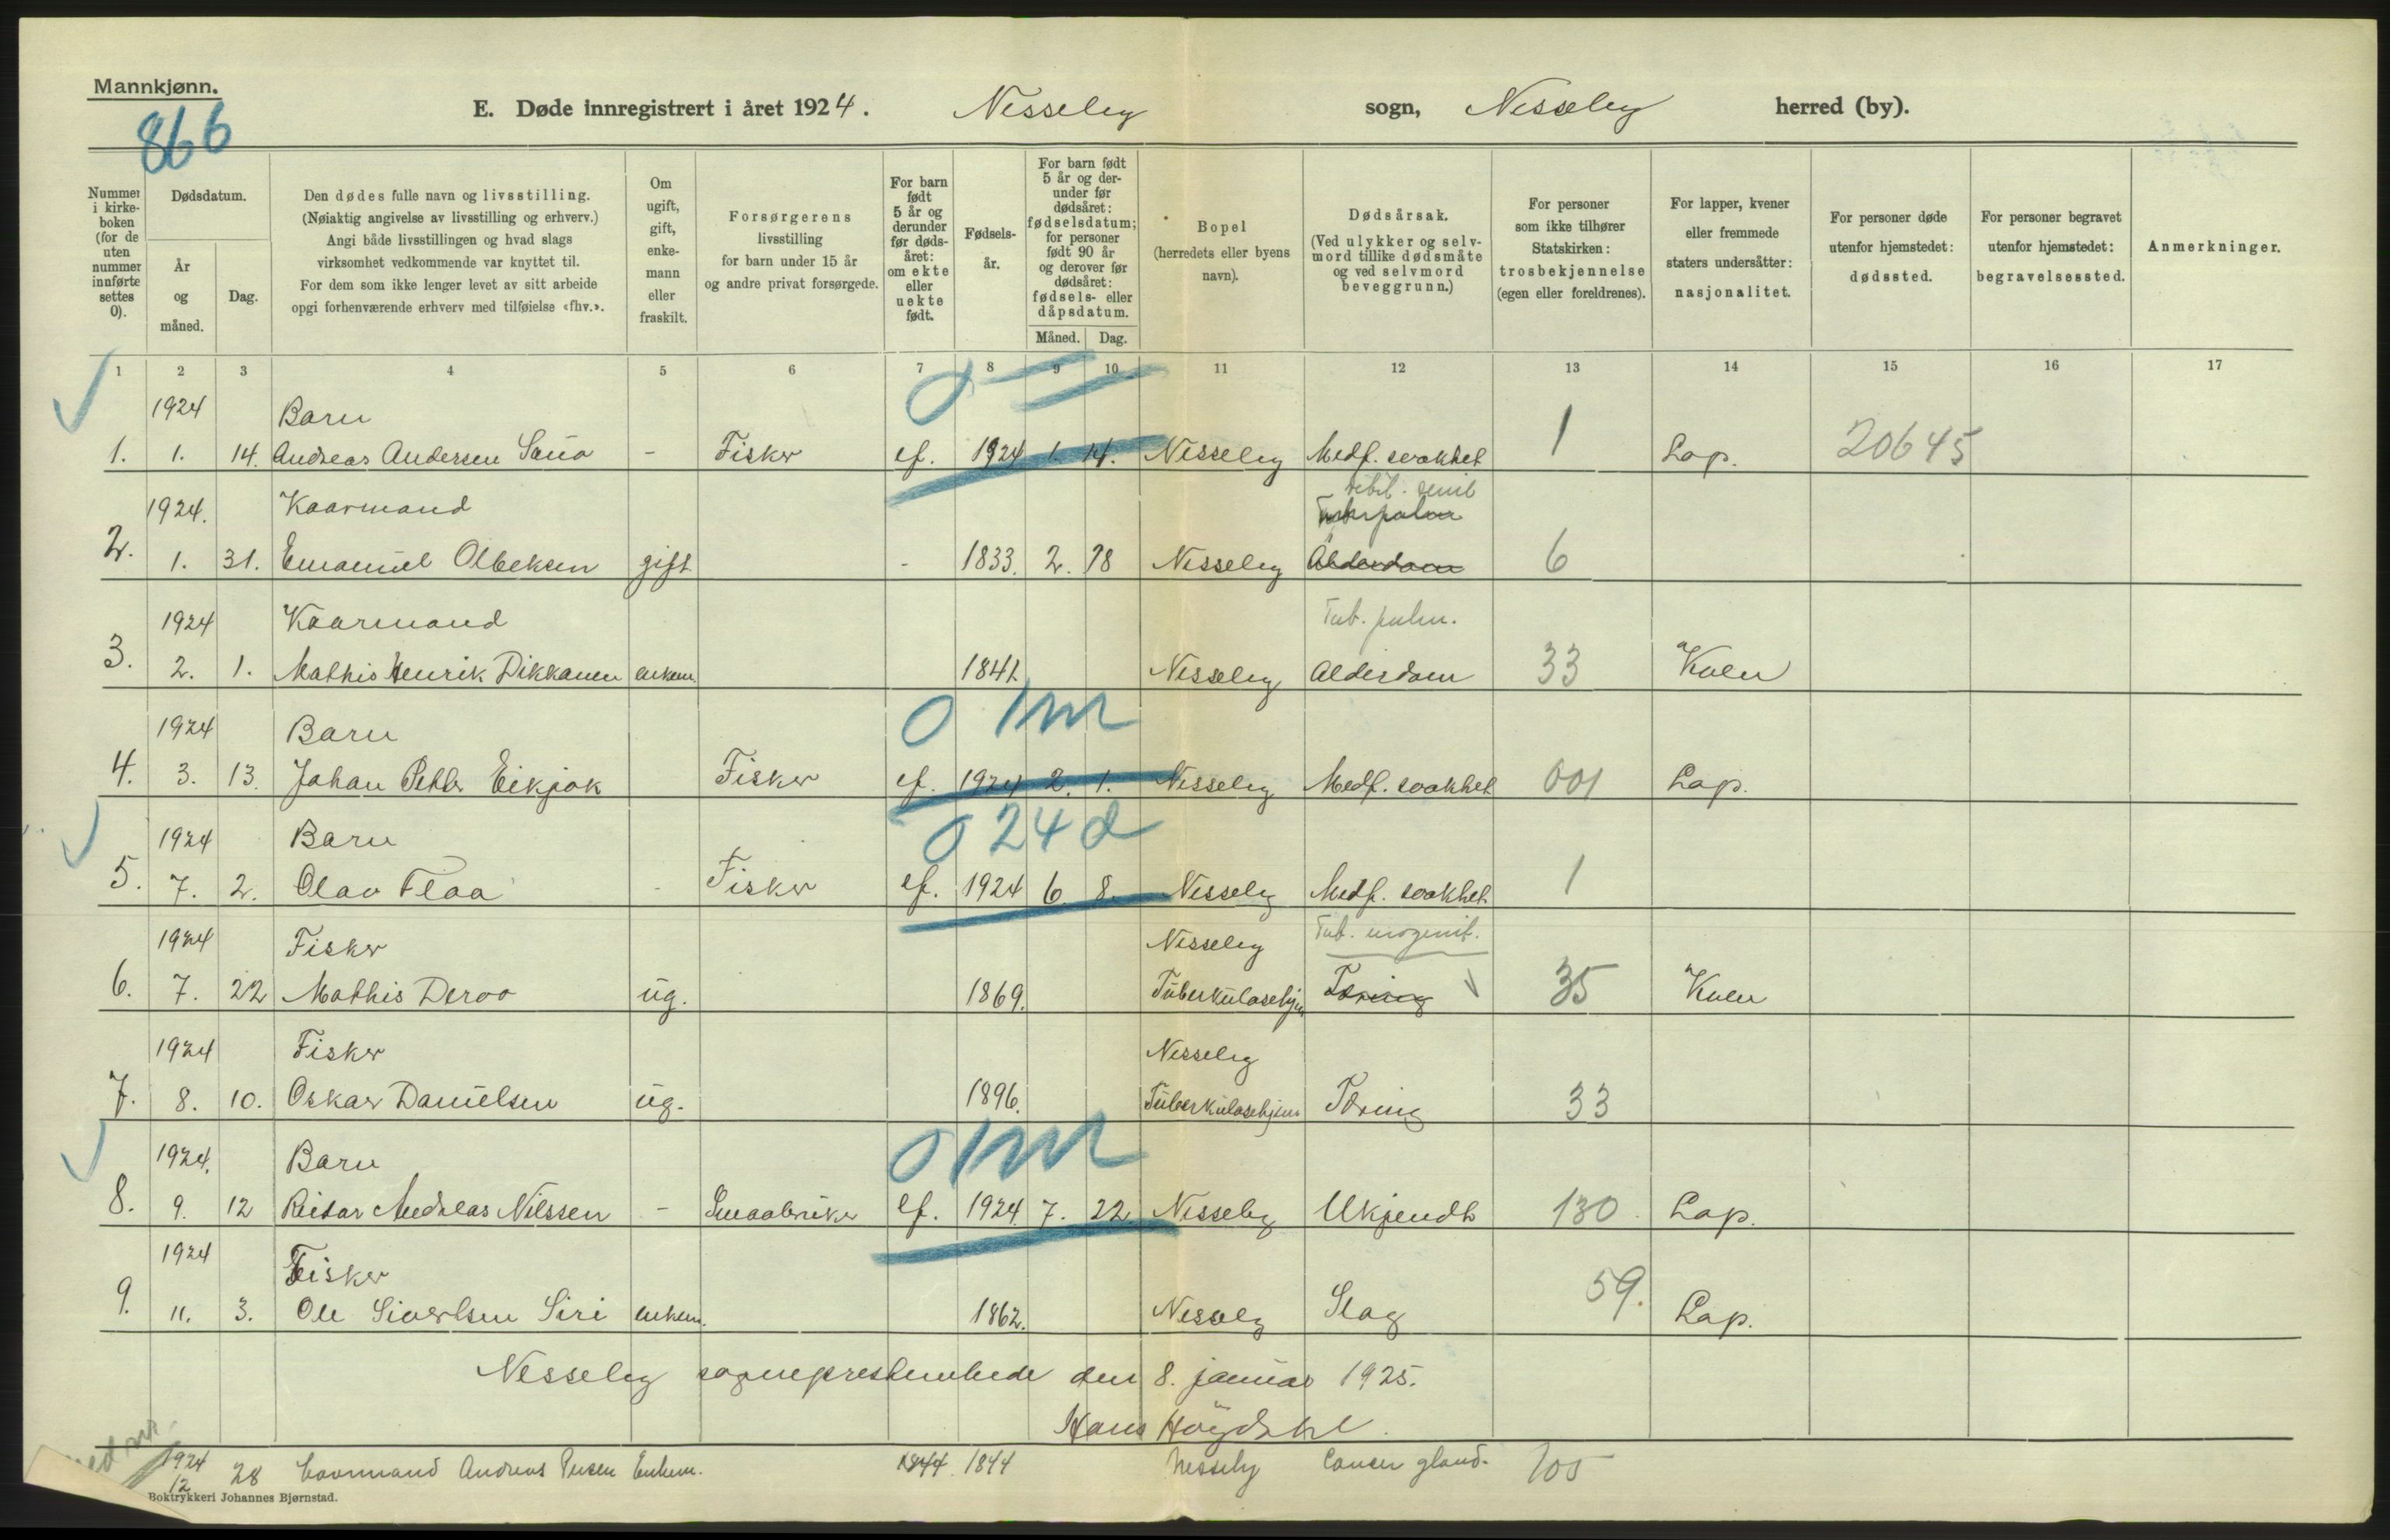 Mannkjønn.
866
E. Døde innregistrert i året 1924. Nesseby sogn, Nesseby herred (by).
Nummer i kirkeboken (for de uten nummer innførte settes 0).
Dødsdatum.
År og måned.
Dag.
Den dødes fulle navn og livsstilling.
(Nøiaktig angivelse av livsstilling og erhverv.)
Angi både livsstillingen og hvad slags
virksomhet vedkommende var knyttet til.
For dem som ikke lenger levet av sitt arbeide
opgi forhenværende erhverv med tilføielse «fhv.».
Om ugift, gift, enkemann eller fraskilt.
Forsørgerens livsstilling for barn under 15 år og andre privat forsørgede.
For barn født 5 år og derunder før dødsåret: om ekte eller uekte født.
Fødselsår.
For barn født 5 år og derunder før dødsåret: fødselsdatum; for personer født 90 år og derover før dødsåret: fødsels- eller dåpsdatum.
Måned. Dag.
Bopel (herredets eller byens navn).
Dødsårsak.
(Ved ulykker og selvmord tillike dødsmåte og ved selvmord beveggrunn.)
For personer som ikke tilhører Statskirken: trosbekjennelse (egen eller foreldrenes).
For lapper, kvener eller fremmede staters undersåtter: nasjonalitet.
For personer døde utenfor hjemstedet: dødssted.
For personer begravet utenfor hjemstedet: begravelsessted.
Anmerkninger.
1 2 3 4 5 6 7 8 9 10 11 12 13 14 15 16 17
1924 Barn
1. 1. 14. Andreas Andersen - Fisker ef. 1924 1. 14. Nesseby Medf. svakhet 1 Lap. 20645
debil. senil
1924. Kaarmand
2. 1. 31. Emanuel Olbeksen gift - 1833. 2. 18 Nesseby Alderdom 6
1924 Kaarmand Tub. pulm.
3. 2. 1. Mathis Henrik Dikkanen enkem. 1841. Nesseby Alderdom 33 Kven
1924 Barn 0 1m
4. 3. 13. Johan Petter Eikjok Fisker ef. 1924 2. 1. Nesseby Medf. svakhet 001 Lap.
1924 Barn 0 24 d
5. 7. 2. Olav Flaa - Fisker ef. 1924 6. 8. Nesseby Medf. svakhet 1
1924 Fisker Nesseby Tub. urogenit.
6. 7. 22 Mathis Deroo ug. 1869. Tuberkulosehjm Tæring 35 Kven
1924 Fisker Nesseby
7. 8. 10. Oskar Danielsen ug. 1896. Tuberkulosehjem Tæring 33
1924. Barn 0 1m
8. 9. 12 Reidar Andreas Nilssen - Smaabruker ef. 1924. 7. 22. Nesseby Ukjendt 130. Lap.
1924 Fisker
9. 11. 3. Ole Sivertsen Siri enkem. 1862. Nesseby Slag 59. Lap.
Nesseby sogneprestembede den 8. januar 1925.
Hans Høydahl.
1924 12 28 Andreas Enkem. 1844 1844 Nesseby Cancer gland. 105
Boktrykkeri Johannes Bjørnstad.